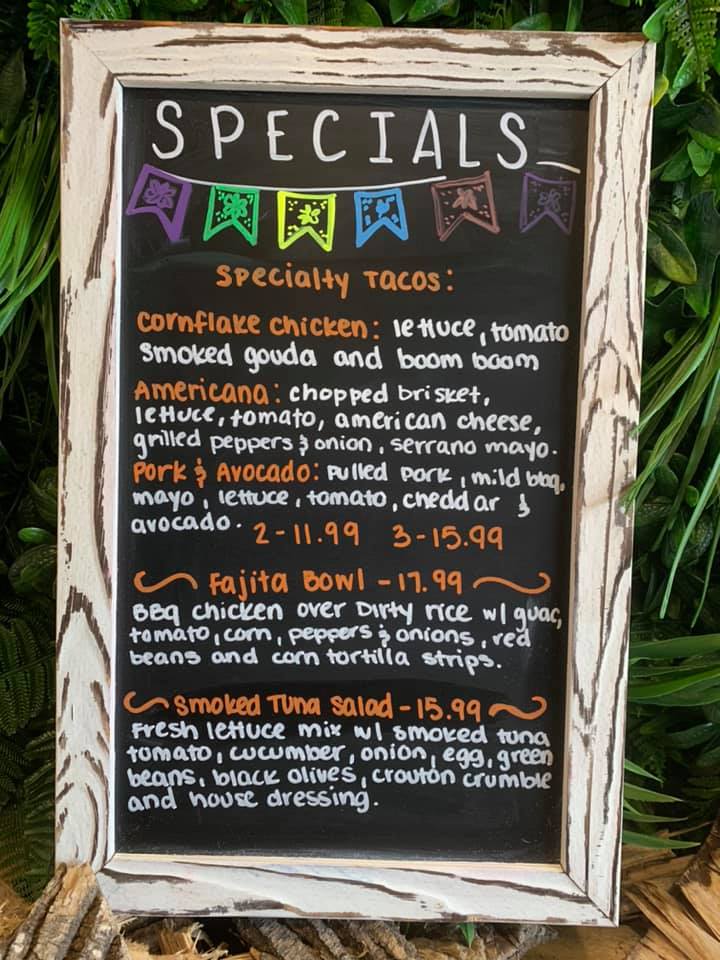 SPECIALS
Specialty Tacos:
Cornflake Chicken: lettuce, tomato
Smoked gouda and boom boom
Americana: chopped brisket,
lettuce, tomato, american cheese,
grilled peppers & onion, serrano mayo.
Pork & Avocado: Pulled pork, mild bbq,
mayo, lettuce, tomato, cheddar &
avocado. 2-11.99 3-15.99
Fajita Bowl - 17.99
BBq chicken over Dirty rice w/ guac,
tomato, corn, peppers & onions, red
beans and corn tortilla strips.
Smoked Tuna Salad - 15.99
Fresh lettuce mix w/ smoked tuna
tomato, cucumber, onion, egg, green
beans, black olives, crouton crumble
and house dressing.